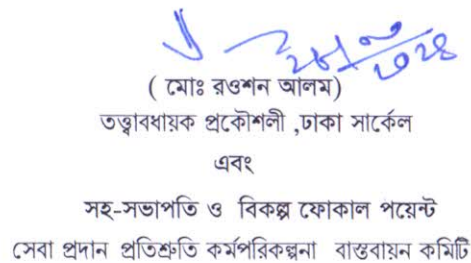 ( মোঃ রওশন আলম)
তত্ত্বাবধায়ক প্রকৌশলী ,ঢাকা সার্কেল
এবং
সহ-সভাপতি ও বিকল্প ফোকাল পয়েন্ট
সেবা প্রদান প্রতিশ্রুতি কর্মপরিকল্পনা বাস্তবায়ন কমিটি